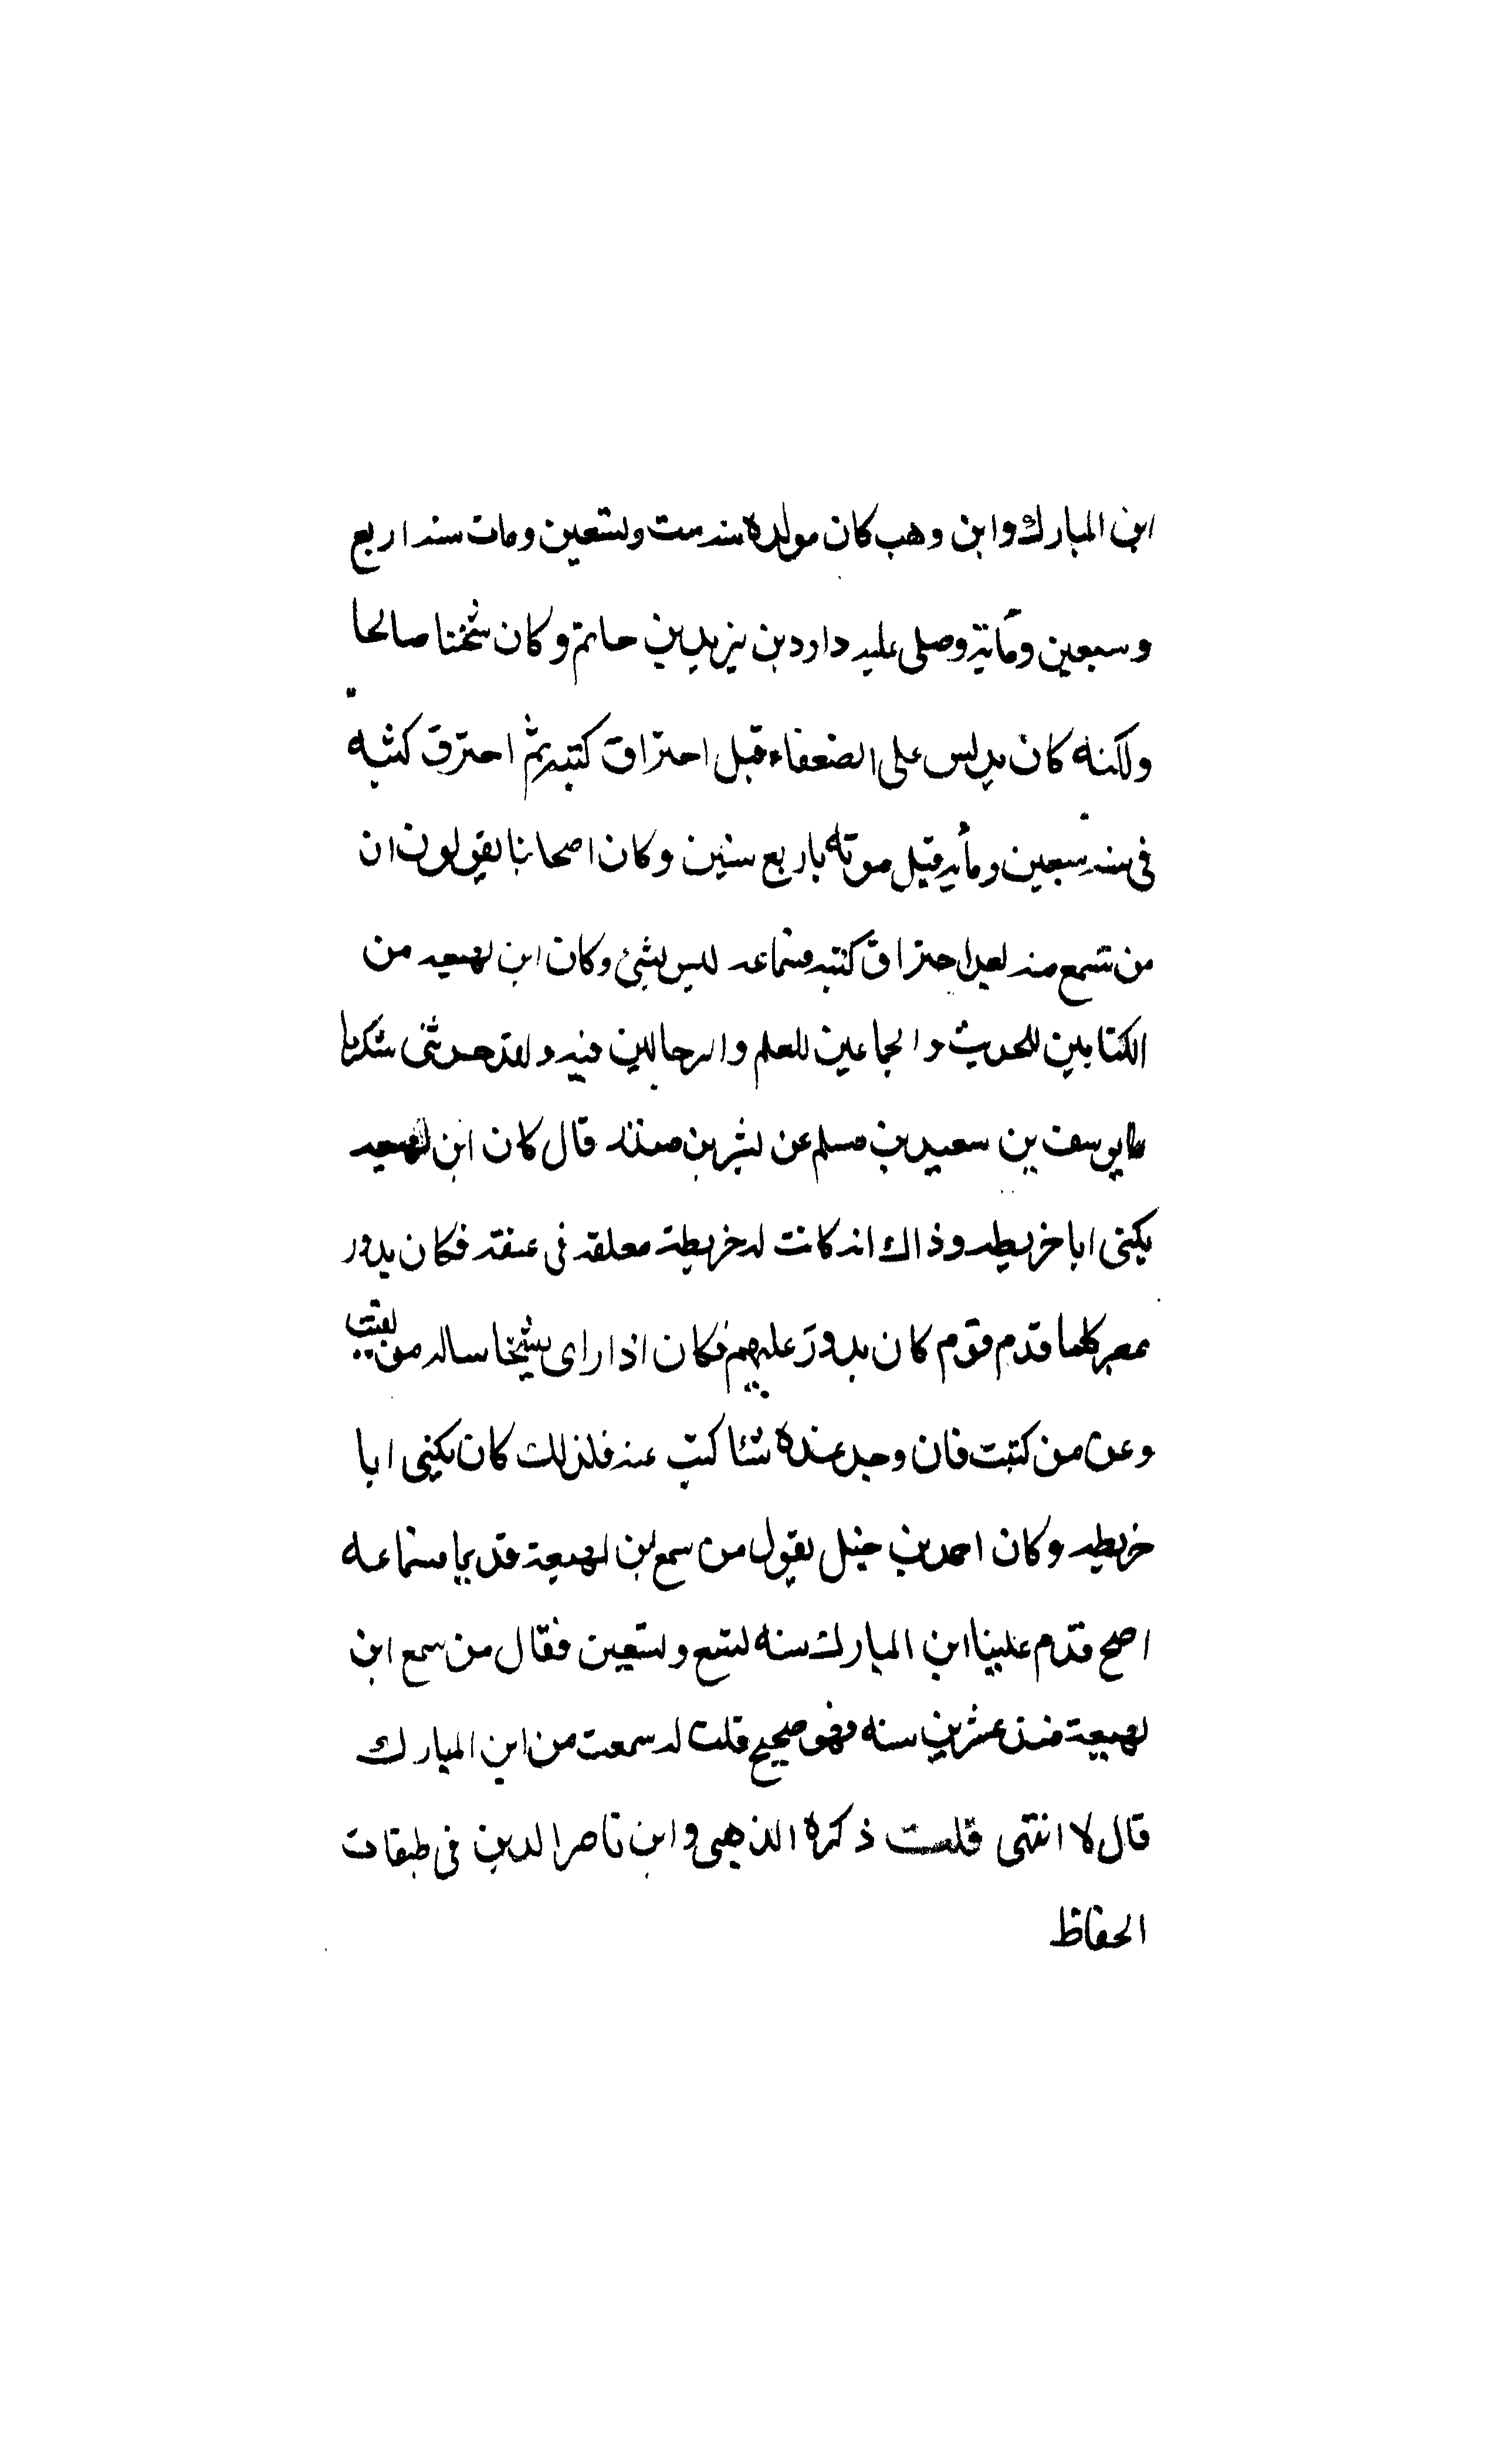 ابن المبارك وابن وهب كان مولده سنه ست وتسعين ومات سنه اربع
وسبعين ومأية وصلى عليه داود بن يزيد بن حاتم وكان شيخنا صالحا
ولكنه كان يدلس على الضعفاء قبل احتراق كتبه ثم احترق كتبه
فى سنه سبعين ومأيه قبل موته باربع سنين وكان اصحابنا يقولون ان
من سمع منه بعد احتراق كتبه فسماعه ليس بشئ وكان ابن لهيعه من
الكتابين للحديث والجماعين للعلم والرحالين فيه ولقد حدثنى شكر نا
نا يوسف بن سعيد بن مسلم عن بشر بن منذر قال كان ابن لهيعه
يكنى ابا خريطه وذاك انه كانت له خريطة معلقه فى عنقه فكان يدور
بمصر كلما قدم قوم كان يدور عليهم فكان اذا راى شيخا ساله من لقيت
وعن من كتبت فان وجد عنده شئا كتب عنه فلذلك كان يكنى ابا
خريطه وكان احمد بن حنبل يقول من سمع ابن لهيعة قديما فسماعه
اصح قدم علينا ابن المبارك سنه تسع وتسعين فقال من سمع ابن
لهيعة منذ عشرين سنه فهو صحيح قلت له سمعت من ابن المبارك
قال لا انتهى قلت ذكره الذهبى وابن ناصر الدين فى طبقات
الحفاظ